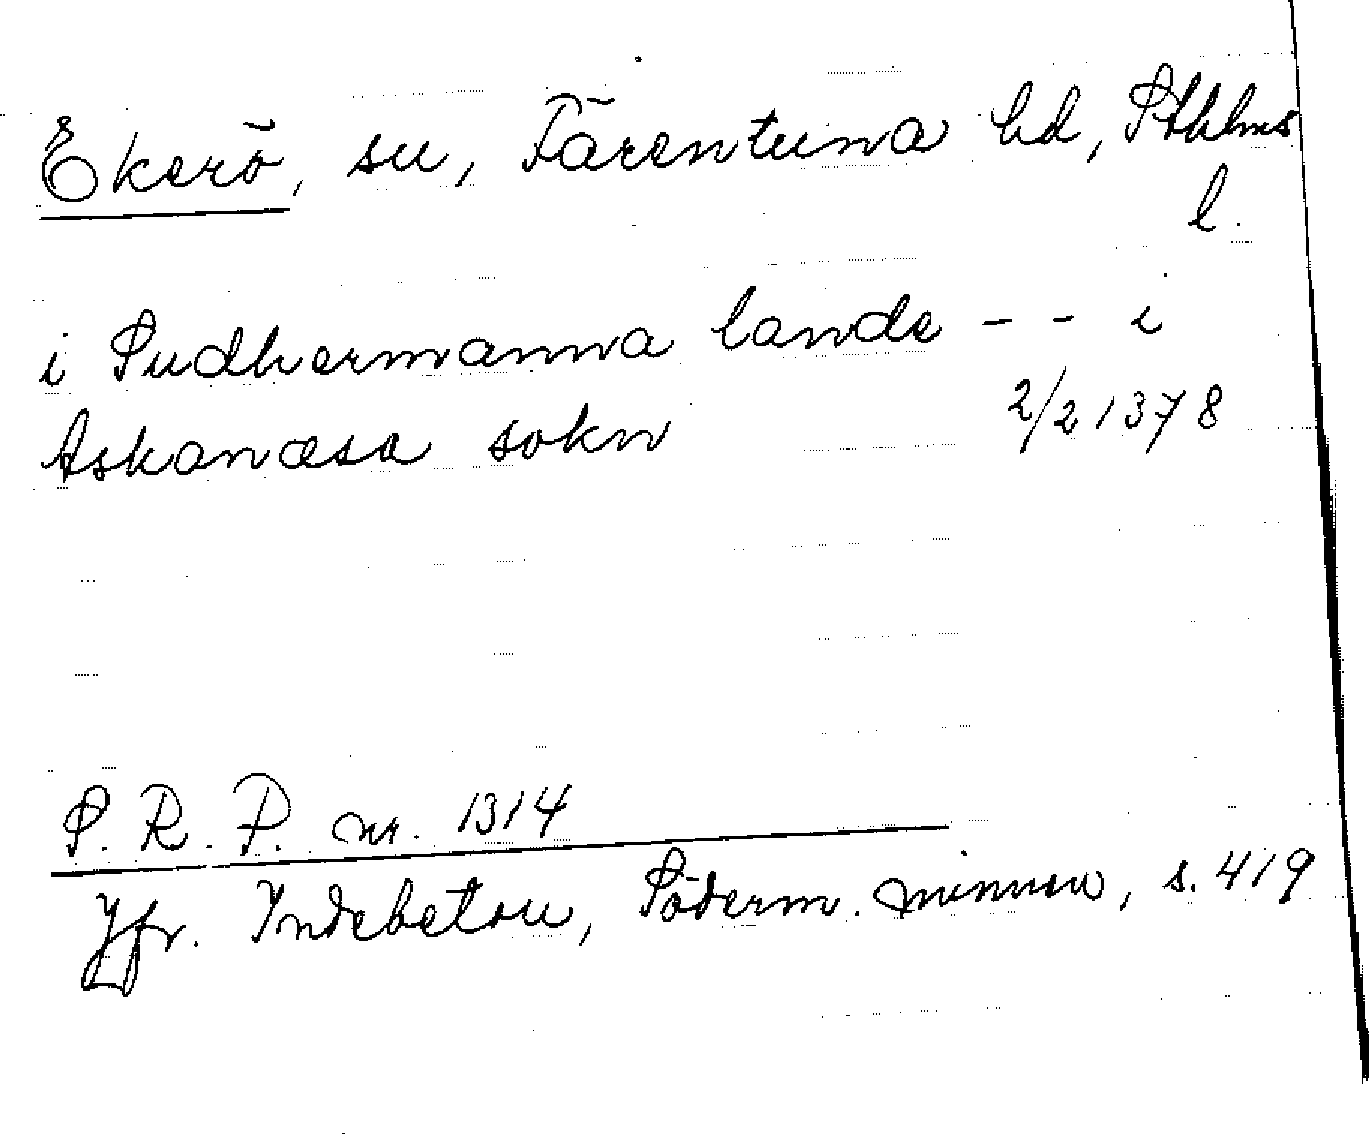 Ekerö, sn, Färentuna hd, Sthlms
l.
i Sudhermanna lande - - i
Askanæsa sokn 2/2 1378
S. R. P. nr. 1314
Jfr. Indebetou, Söderm. minnen, s. 419